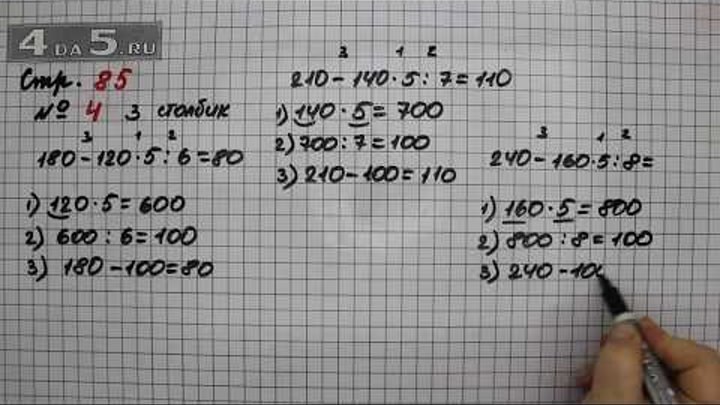 4 DA 5.RU
Стр. 85
№ 4 3 столбик
3 1 2
180 - 120 · 5 : 6 = 80
1) 120 · 5 = 600
2) 600 : 6 = 100
3) 180 - 100 = 80
3 1 2
210 - 140 · 5 : 7 = 110
1) 140 · 5 = 700
2) 700 : 7 = 100
3) 210 - 100 = 110
3 1 2
240 - 160 · 5 : 8 =
1) 160 · 5 = 800
2) 800 : 8 = 100
3) 240 - 100